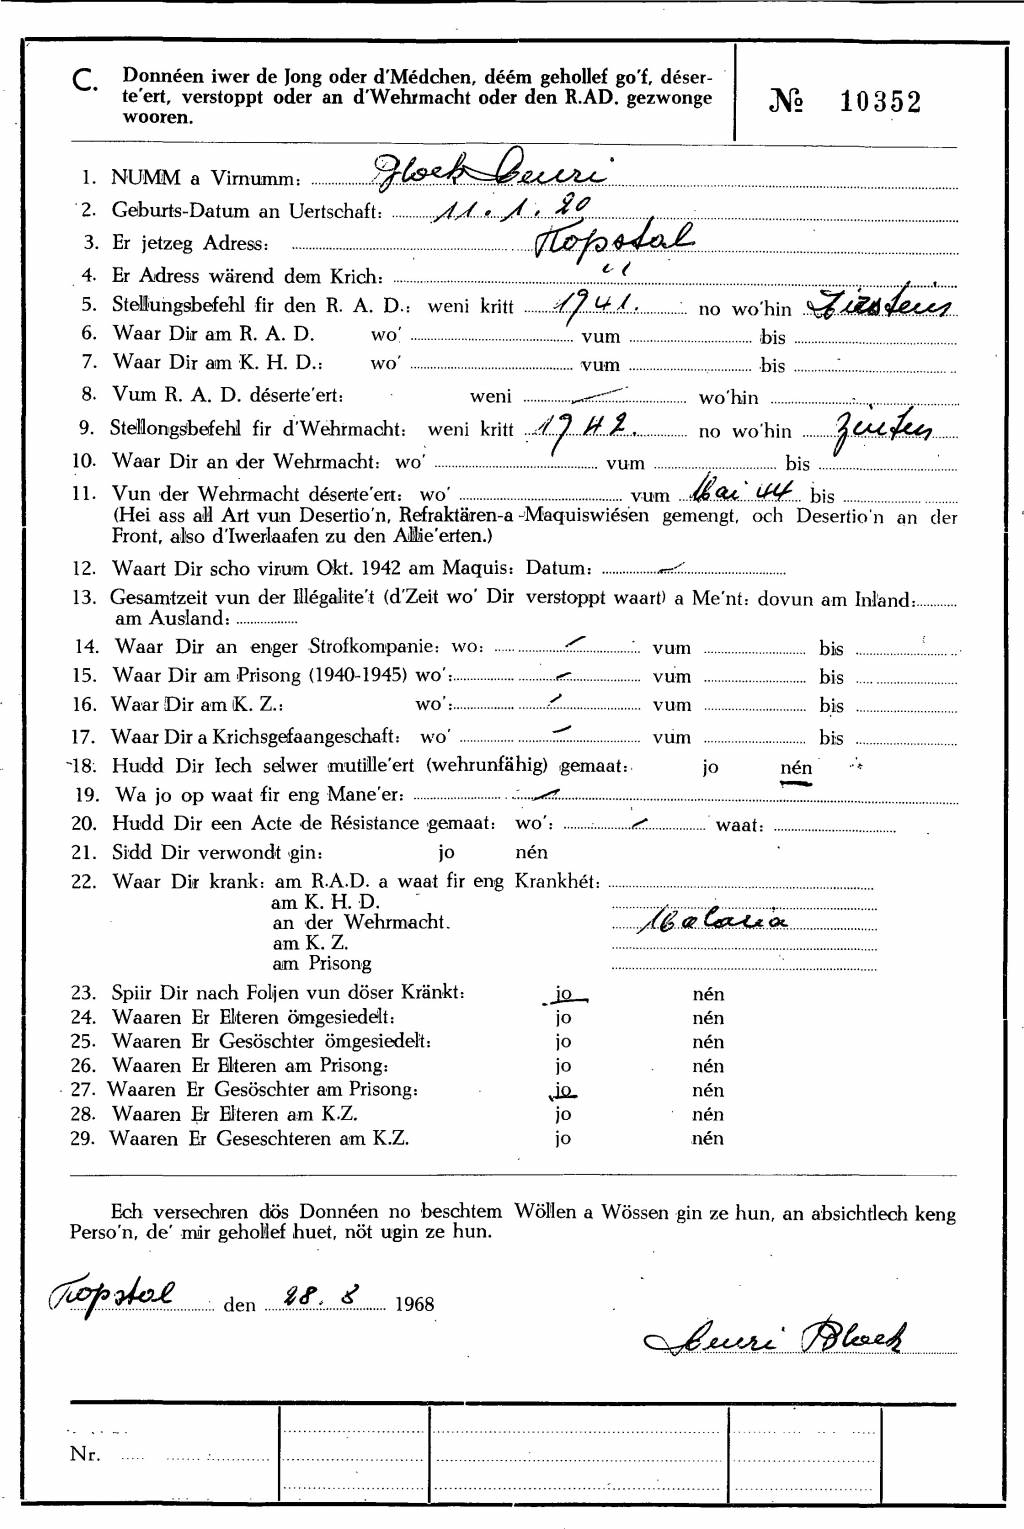 C. Donnéen iwer de Jong oder d'Médchen, déém gehollef go'f, déser-
te'ert, verstoppt oder an d'Wehrmacht oder den R.AD. gezwonge
wooren.
№ 10352
1. NUMM a Virnumm: Bloek Henri
2. Geburts-Datum an Uertschaft: 11. 1. 20
3. Er jetzeg Adress: Kopstal
4. Er Adress wärend dem Krich: "
5. Stellungsbefehl fir den R. A. D.: weni kritt 1941. no wo'hin
6. Waar Dir am R. A. D. wo' vum bis
7. Waar Dir am K. H. D.: wo' vum bis
8. Vum R. A. D. déserte'ert: weni — wo'hin
9. Stellongsbefehl fir d'Wehrmacht: weni kritt 1942. no wo'hin Zinten
10. Waar Dir an der Wehrmacht: wo' vum bis
11. Vun der Wehrmacht déserte'ert: wo' vum Mai 44 bis
(Hei ass all Art vun Desertio'n, Refraktären-a -Maquiswiésen gemengt, och Desertio'n an der
Front, also d'Iwerlaafen zu den Allie'erten.)
12. Waart Dir scho virum Okt. 1942 am Maquis: Datum: —
13. Gesamtzeit vun der Illégalite't (d'Zeit wo' Dir verstoppt waart) a Me'nt: dovun am Inland:
am Ausland:
14. Waar Dir an enger Strofkompanie: wo: — vum bis
15. Waar Dir am Prisong (1940-1945) wo': — vum bis
16. Waar Dir am K. Z.: wo': — vum bis
17. Waar Dir a Krichsgefaangeschaft: wo' — vum bis
18. Hudd Dir Iech selwer mutille'ert (wehrunfähig) gemaat: jo nén
19. Wa jo op waat fir eng Mane'er: —
20. Hudd Dir een Acte de Résistance gemaat: wo': — waat:
21. Sidd Dir verwondt gin: jo nén
22. Waar Dir krank: am R.A.D. a waat fir eng Krankhét:
am K. H. D.
an der Wehrmacht. Malaria
am K. Z.
am Prisong
23. Spiir Dir nach Foljen vun döser Kränkt: jo nén
24. Waaren Er Elteren ömgesiedelt: jo nén
25. Waaren Er Gesöschter ömgesiedelt: jo nén
26. Waaren Er Elteren am Prisong: jo nén
27. Waaren Er Gesöschter am Prisong: jo nén
28. Waaren Er Elteren am K.Z. jo nén
29. Waaren Er Geseschteren am K.Z. jo nén
Ech versechren dös Donnéen no beschtem Wöllen a Wössen gin ze hun, an absichtlech keng
Perso'n, de' mir gehollef huet, nöt ugin ze hun.
Kopstal den 28. 8 1968
Henri Bloek
Nr.